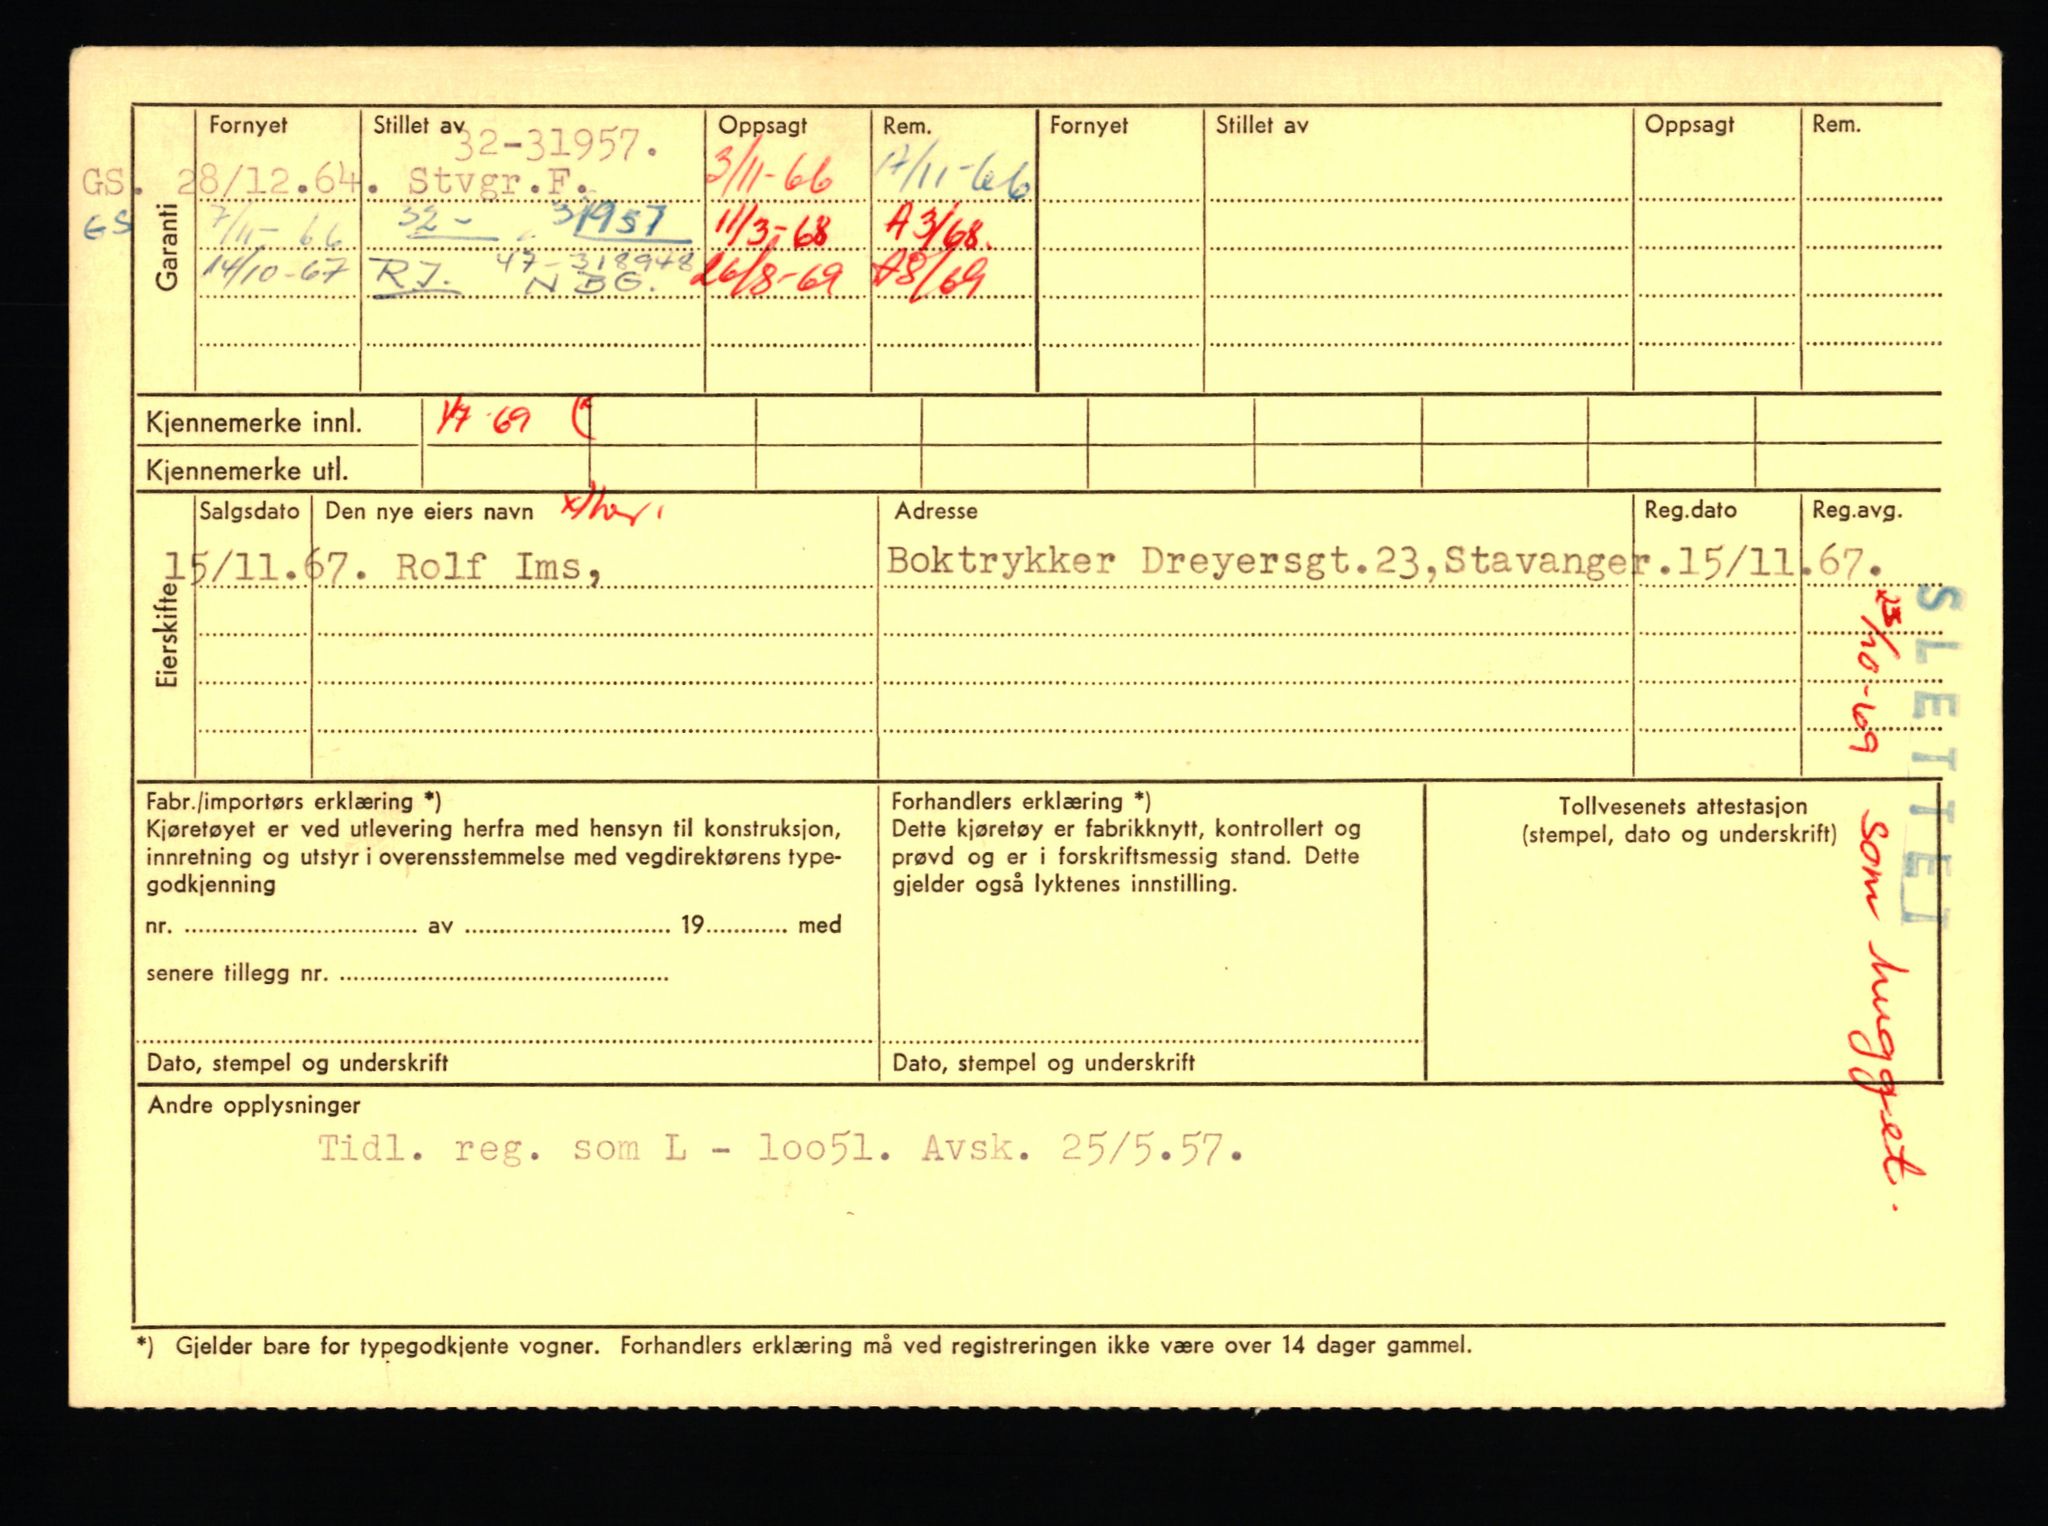 Garanti
Fornyet Stillet av Oppsagt Rem. Fornyet Stillet av Oppsagt Rem.
32-31957.
GS. 28/12.64. Stvgr.F. 3/11-66 17/11-66
GS 7/11-66 32- 31957 11/3-68 A 3/68.
14/10-67 R.I. 47-318948 26/8-69 A8/69
NBG.
Kjennemerke innl. 1/7 69
Kjennemerke utl.
Eierskifte
Salgsdato Den nye eiers navn Adresse Reg.dato Reg.avg.
15/11.67. Rolf Ims, Boktrykker Dreyersgt.23,Stavanger.15/11.67.
SLETTET
25/10-69 som hugget.
Fabr./importørs erklæring *)
Kjøretøyet er ved utlevering herfra med hensyn til konstruksjon,
innretning og utstyr i overensstemmelse med vegdirektørens type-
godkjenning
nr. .......... av .......... 19.......... med
senere tillegg nr. ..........
Dato, stempel og underskrift
Forhandlers erklæring *)
Dette kjøretøy er fabrikknytt, kontrollert og
prøvd og er i forskriftsmessig stand. Dette
gjelder også lyktenes innstilling.
Dato, stempel og underskrift
Tollvesenets attestasjon
(stempel, dato og underskrift)
Andre opplysninger
Tidl. reg. som L - loo51. Avsk. 25/5.57.
*) Gjelder bare for typegodkjente vogner. Forhandlers erklæring må ved registreringen ikke være over 14 dager gammel.